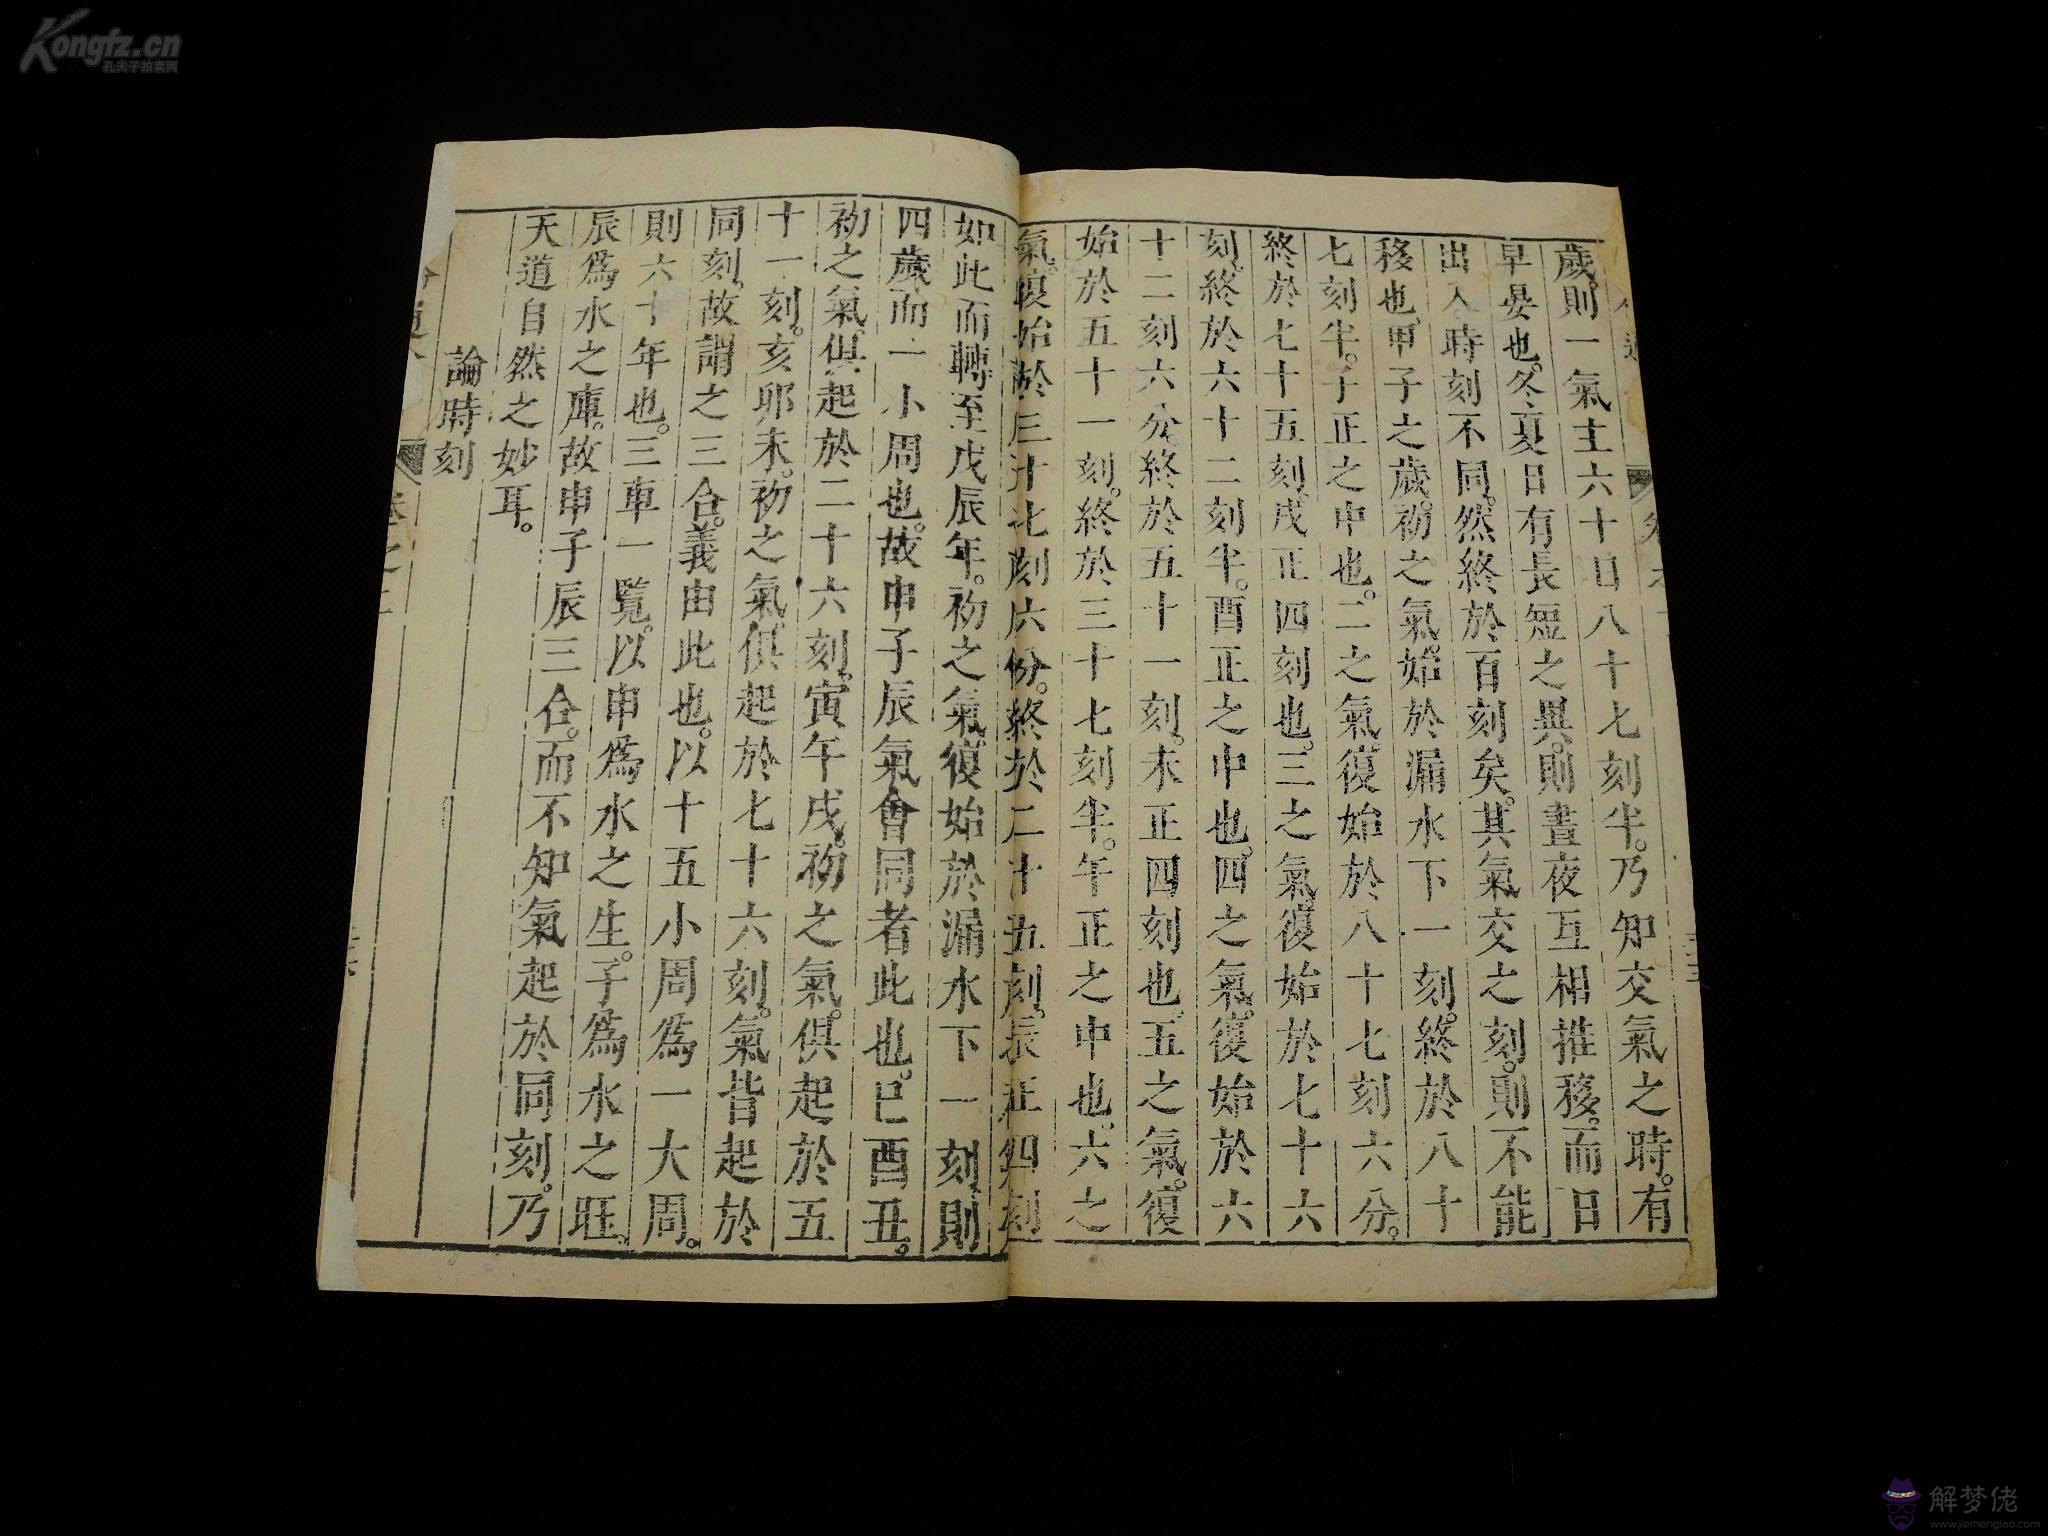 歲。則一氣主六十日八十七刻半。乃知交氣之時。有
早晏也。冬夏日有長短之異。則晝夜互相推移。而日
出入時刻不同。然終於百刻矣。其氣交之刻。則不能
移也。甲子之歲。初之氣。始於漏水下一刻。終於八十
七刻半。子正之中也。二之氣。復始於八十七刻六分。
終於七十五刻。戌正四刻也。三之氣。復始於七十六
刻。終於六十二刻半。酉正之中也。四之氣。復始於六
十二刻六分。終於五十一刻。未正四刻也。五之氣。復
始於五十一刻。終於三十七刻半。午正之中也。六之
氣。復始於三十七刻六分。終於二十五刻。辰正四刻
如此而轉至戊辰年。初之氣。復始於漏水下一刻。則
四歲而一小周也。故申子辰氣會同者此也。巳酉丑。
初之氣。俱起於二十六刻。寅午戌。初之氣。俱起於五
十一刻。亥卯未。初之氣。俱起於七十六刻。氣皆起於
同刻。故謂之三合。義由此也。以十五小周爲一大周。
則六十年也。三車一覽。以申爲水之生。子爲水之旺。
辰爲水之庫。故申子辰三合。而不知氣起於同刻。乃
天道自然之妙耳。
論時刻
卷之二
Kongfz.cn
孔夫子拍卖网
解梦佬
www.jiemenglao.com